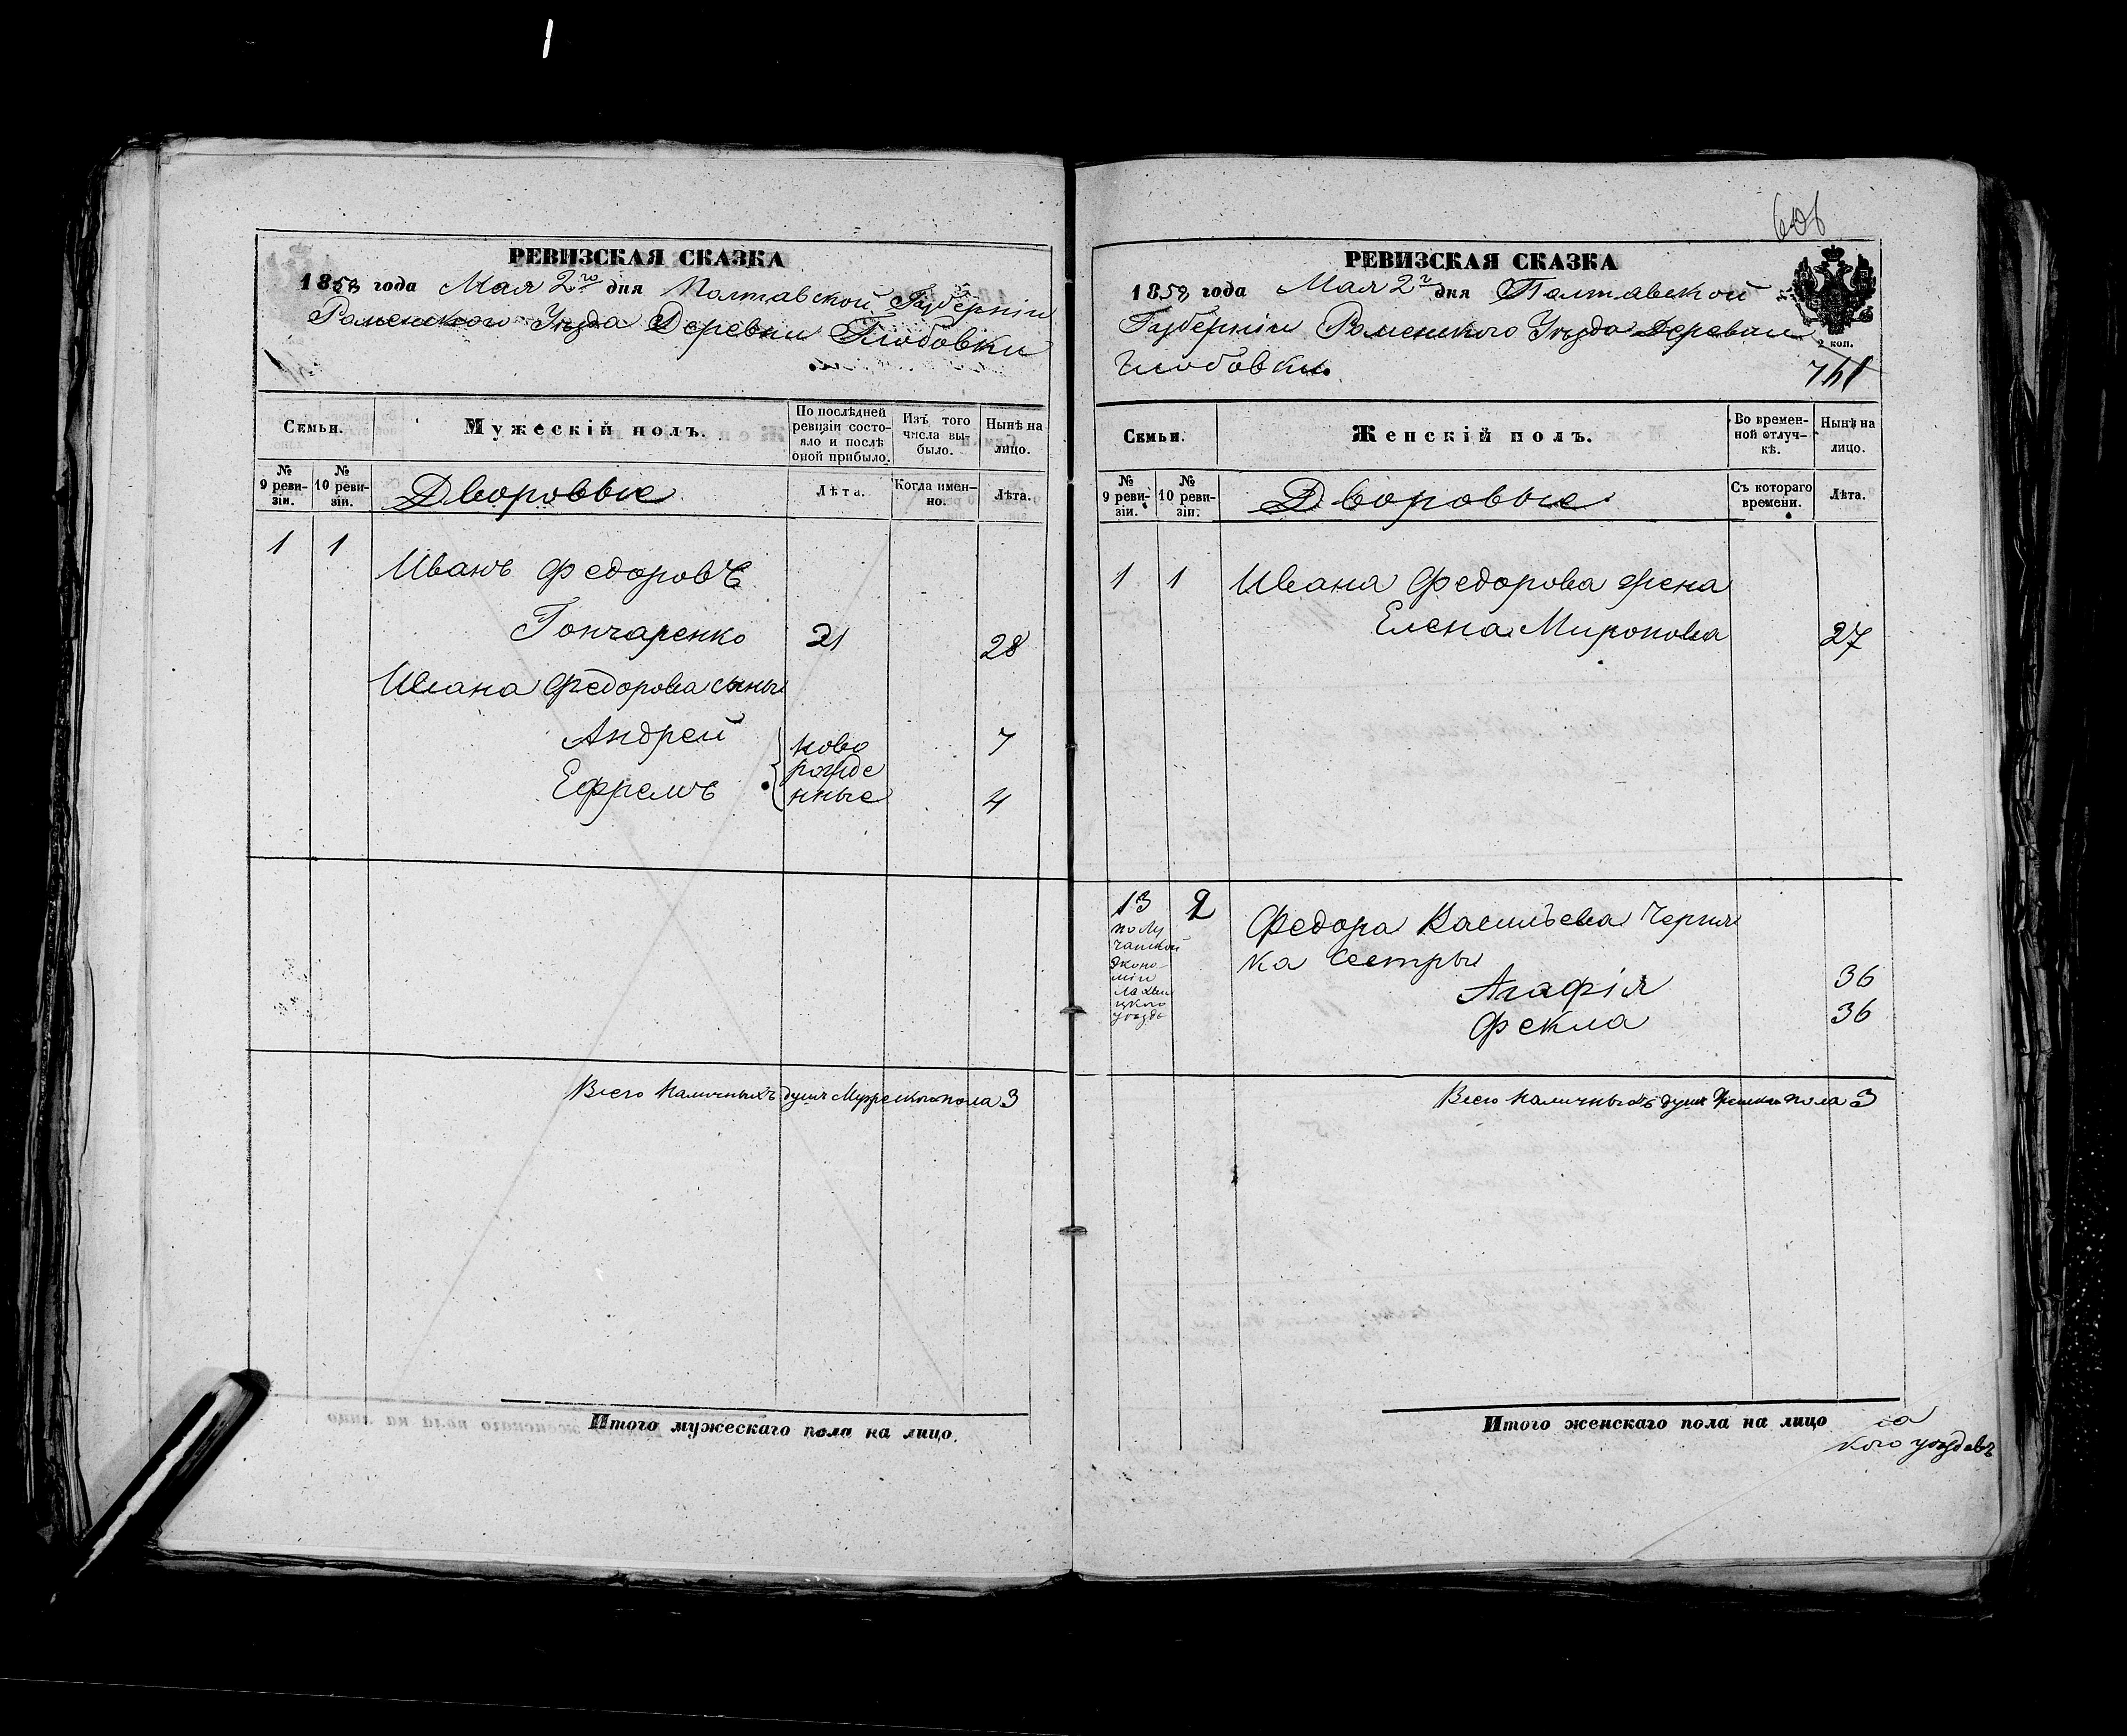 РЕВИЗСКАЯ СКАЗКА
1858 года Мая 2го дня Полтавской Губерніи
Роменского Уезда Деревни Глобовки
Семьи.
Мужескій полъ.
По послѣдней ревизіи состояло и послѣ оной прибыло.
Изъ того числа выбыло.
Нынѣ на лицо.
№ 9 ревизіи.
№ 10 ревизіи.
Дворовые
Лѣта.
Когда именно.
Лѣта.
1 1
Иванъ Федоровъ
Гончаренко 21 28
Ивана Федорова сыны
Андрей 7
Ефремъ 4
ново
рожде
нные
Всего наличныхъ душъ Мужескаго пола 3
Итого мужескаго пола на лицо.
606
РЕВИЗСКАЯ СКАЗКА
1858 года Мая 2г дня Полтавской
Губерніи Роменского Уезда Деревни
Глобовки.
2 коп.
741
Семьи.
Женскій полъ.
Во временной отлучкѣ.
Нынѣ на лицо.
№ 9 ревизіи.
№ 10 ревизіи.
Дворовые
Съ котораго времени.
Лѣта.
1 1 Ивана Федорова жена
Елена Миронова 27
13 2 Федора Васильева Черня
ка Сестры
Агафія 36
Фекла 36
по Лу
чанской
эконо-
міи
Лохви
цкого
уезда
Всего наличныхъ душъ Женска пола 3
Итого женскаго пола на лицо
кого уездовъ